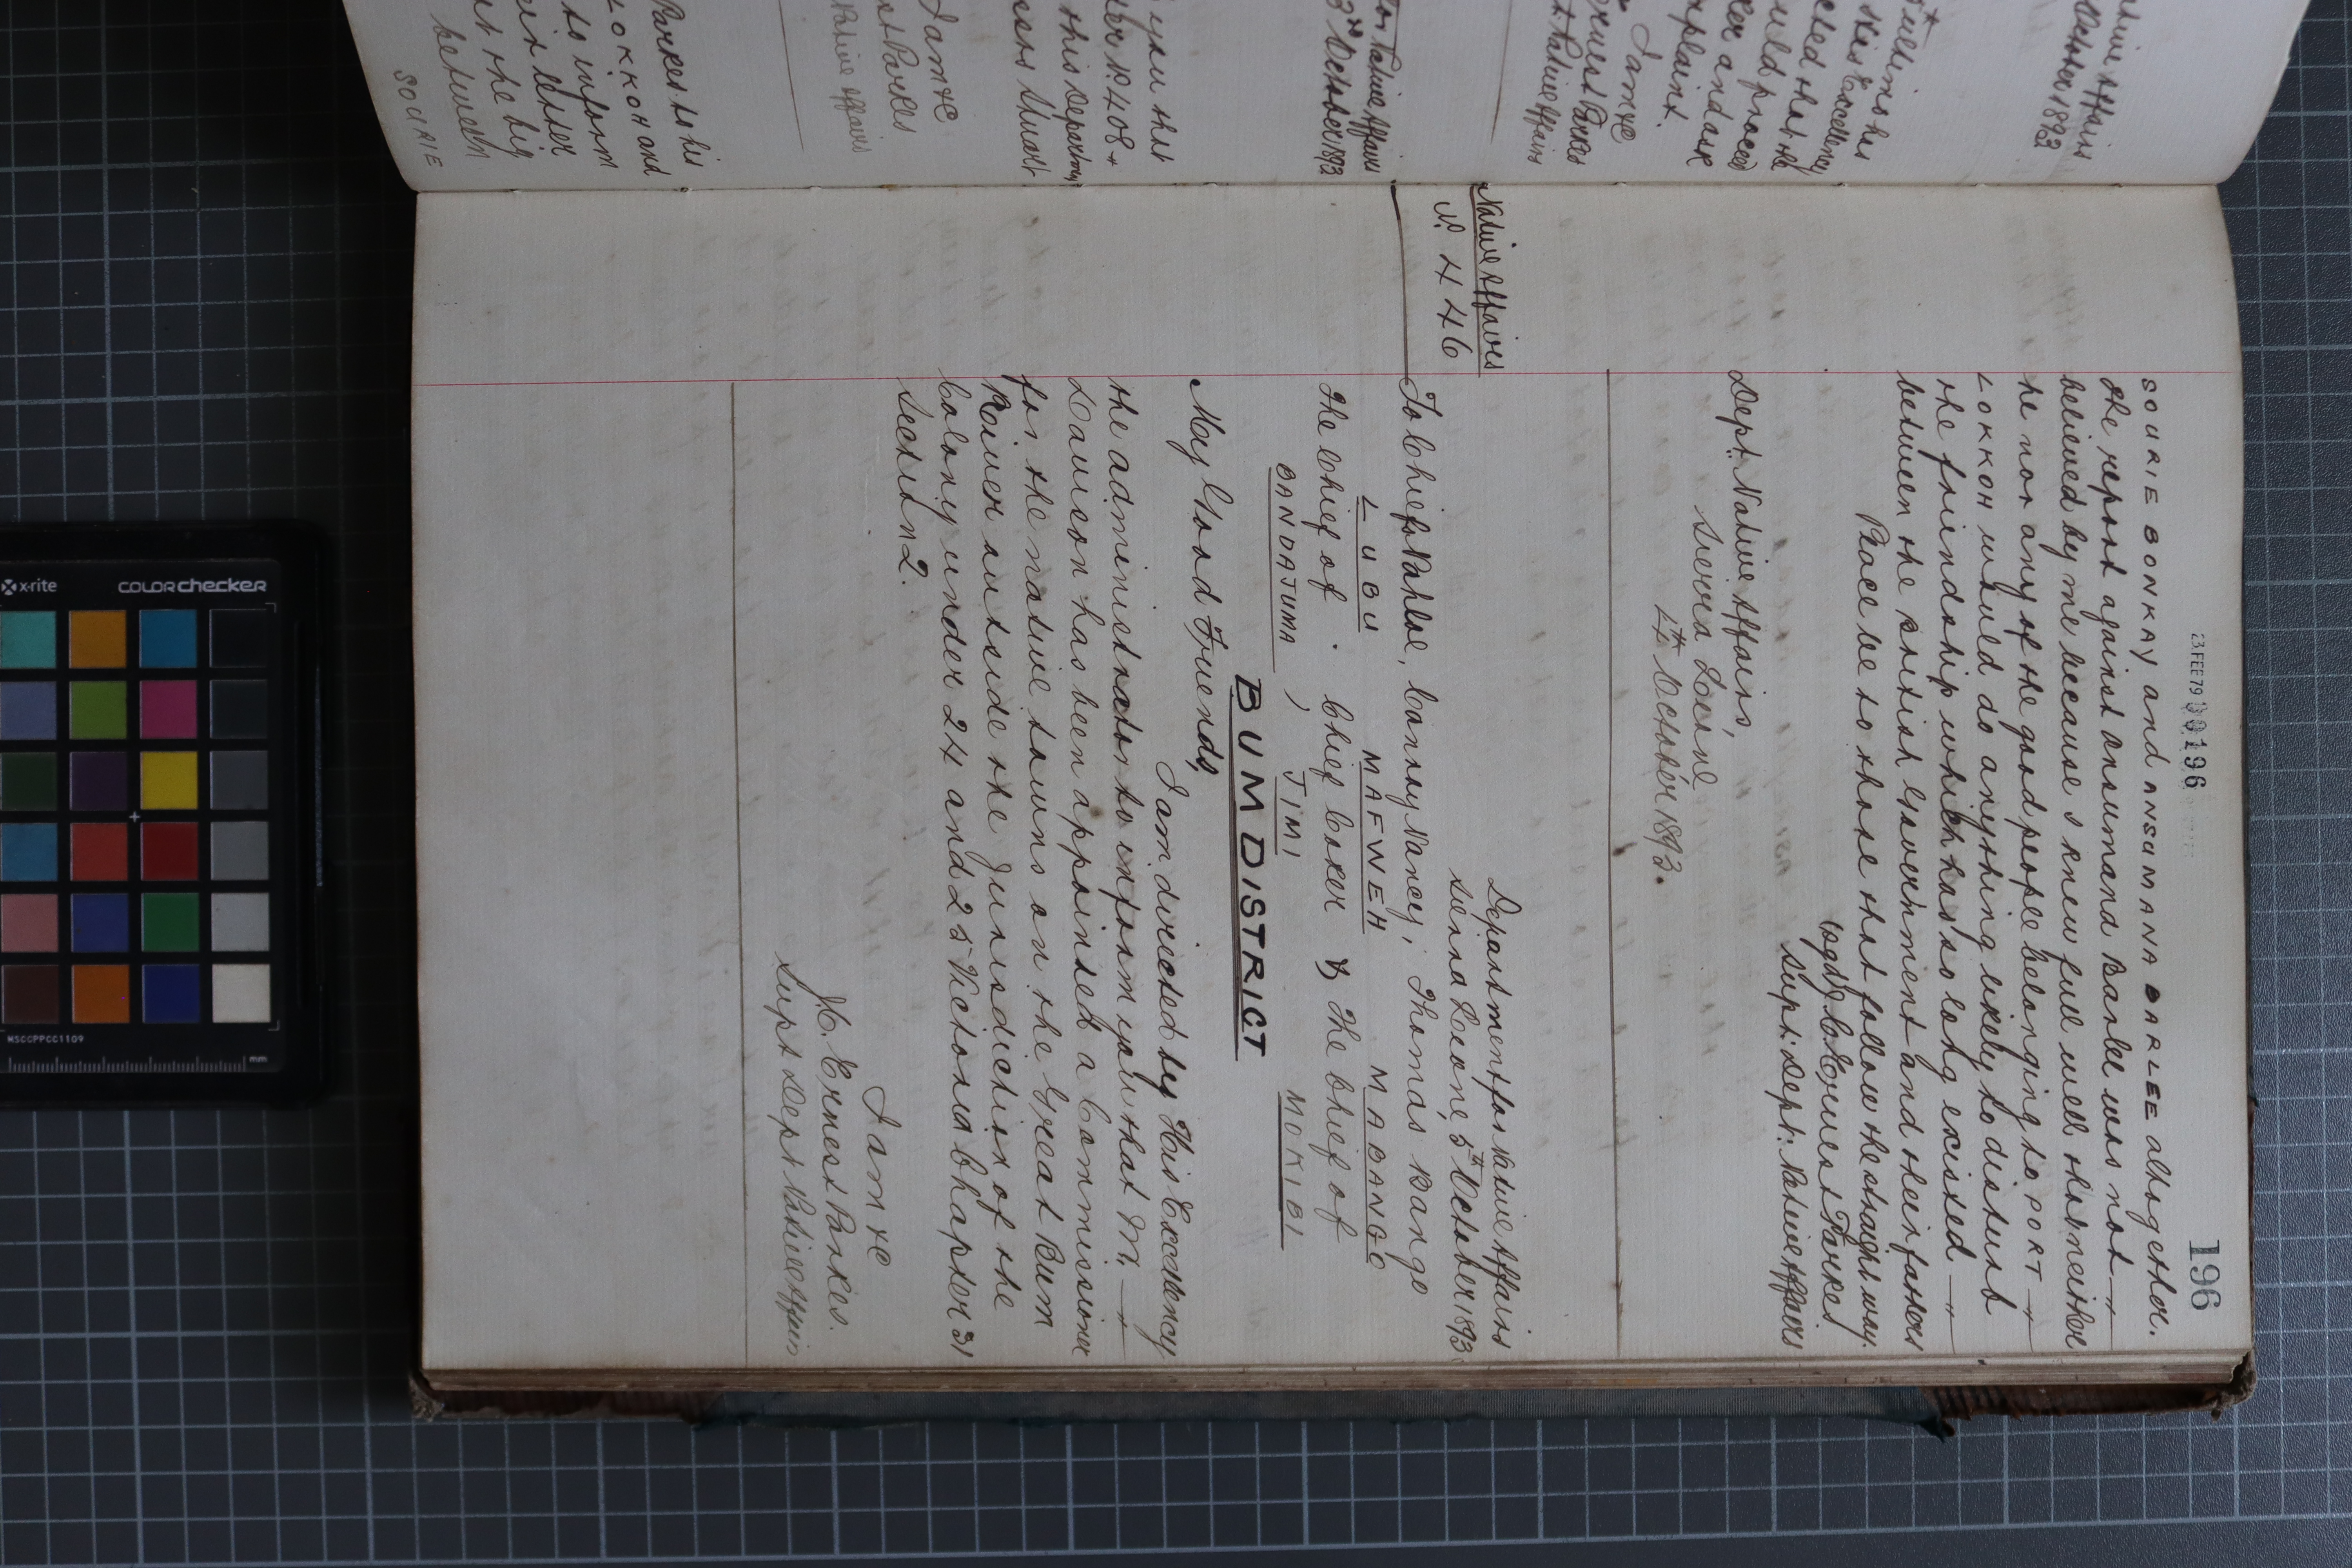 196
23 FEB 79 00196
SOURIE BONKAY and ANSUMANA DARLEE altogether.
The report against Ansumana Banke was not
believed by me because I knew full well that neither
he nor any of the good people belonging to PORT
LOKKOH would do anything likely to disturb
the friendship which has so long existed
between the British Government and their fathers
Peace be to those that follow the straight way.
(sgd) J. C. Ernest Parkes
Supt: Dept: Native Affairs
Dept: Native Affairs,
Sierra Leone
4th October 1893.
Native Affairs
No 446
Department for Native Affairs
Sierra Leone, 5th October 1893
To Chiefs Nahloe, Canny Nancy, Thomas Bango
LUBU MAFWEH MABANGO
The Chief of Chief Coker & The Chief of
BANDAJUMA, JIMI MOKIBI
BUM DISTRICT
My Good Friends,
I am directed by His Excellency
the administrator to inform you that Mr.
Davison has been appointed a Commissioner
for the native towns on the Great Bum
River outside the Jurisdiction of the
Colony under 24 and 25 Victoria Chapter 31
Section 2.
I am &c
J.C. Ernest Parkes.
Supt Dept Native Affairs
Native Affairs
October 1893
His Excellency
that he
would proceed
and ask
complaint.
I am &c
Ernest Parkes
Native Affairs
for Native Affairs
3rd October 1893
you that
408
this Department
Stuart
I am &c
Parkes
Native Affairs
Parkes to his
LOKKOH and
to inform
letter
at the big
between
SOURIE
x-rite
COLORchecker
MSCCPPCC1109
mm